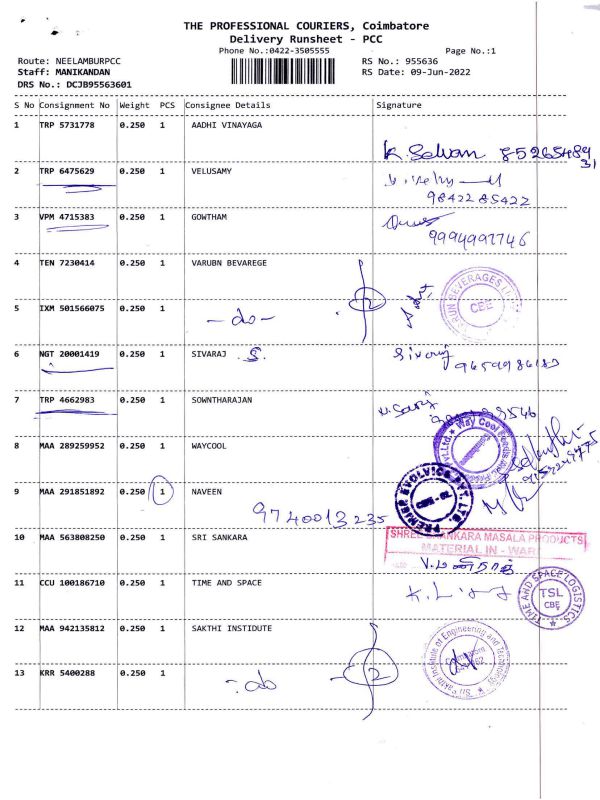 THE PROFESSIONAL COURIERS, Coimbatore
Delivery Runsheet - PCC
Phone No.:0422-3505555
Page No.:1
Route: NEELAMBURPCC
RS No.: 955636
Staff: MANIKANDAN
RS Date: 09-Jun-2022
DRS No.: DCJB95563601
S No Consignment No Weight PCS Consignee Details Signature
1 TRP 5731778 0.250 1 AADHI VINAYAGA
K. Selvam
2 TRP 6475629 0.250 1 VELUSAMY
9842285422
3 VPM 4715383 0.250 1 GOWTHAM
9994997746
4 TEN 7230414 0.250 1 VARUBN BEVAREGE
VARUN BEVERAGES
CBE
5 IXM 501566075 0.250 1
- do -
6 NGT 20001419 0.250 1 SIVARAJ .S.
Sivaraj
7 TRP 4662983 0.250 1 SOWNTHARAJAN
8 MAA 289259952 0.250 1 WAYCOOL
Way Cool Foods
9 MAA 291851892 0.250 1 NAVEEN
9740013235
PREMIER EVOLVICS PVT. LTD.
10 MAA 563808250 0.250 1 SRI SANKARA
SHREE SHANKARA MASALA PRODUCTS
MATERIAL IN - WARD
11 CCU 100186710 0.250 1 TIME AND SPACE
TIME AND SPACE LOGISTICS
TSL
CBE
12 MAA 942135812 0.250 1 SAKTHI INSTIDUTE
Sri Sakthi Institute of Engineering and Technology
13 KRR 5400288 0.250 1
- do